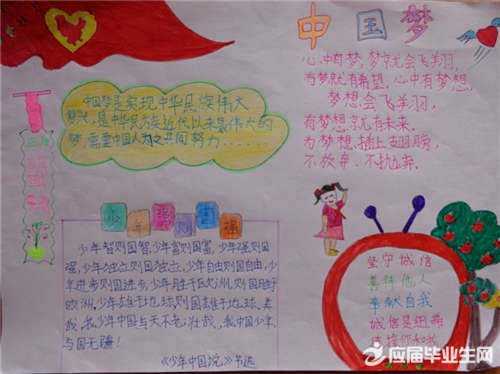 中国梦
心中有梦,梦就会飞翔,
有梦就有希望,心中有梦想,
梦想会飞翔,
有梦想,就有未来.
为梦想,插上翅膀,
不放弃.不抛弃.
中国梦是实现中华民族伟大
复兴,是中华民族近代以来最伟大的
梦,需要中国人为之共同努力......
少年强则国强
少年智则国智,少年富则国富,少年强则国
强,少年独立则国独立,少年自由则国自由,少
年进步则国进步,少年胜于欧洲,则国胜于
欧洲,少年雄于地球,则国雄于地球.美
哉,我少年中国与天不老,壮哉,我中国少年
与国无疆!
《少年中国说》节选
坚守诚信
善待他人
奉献自我
诚信是纽带
应届毕业生网